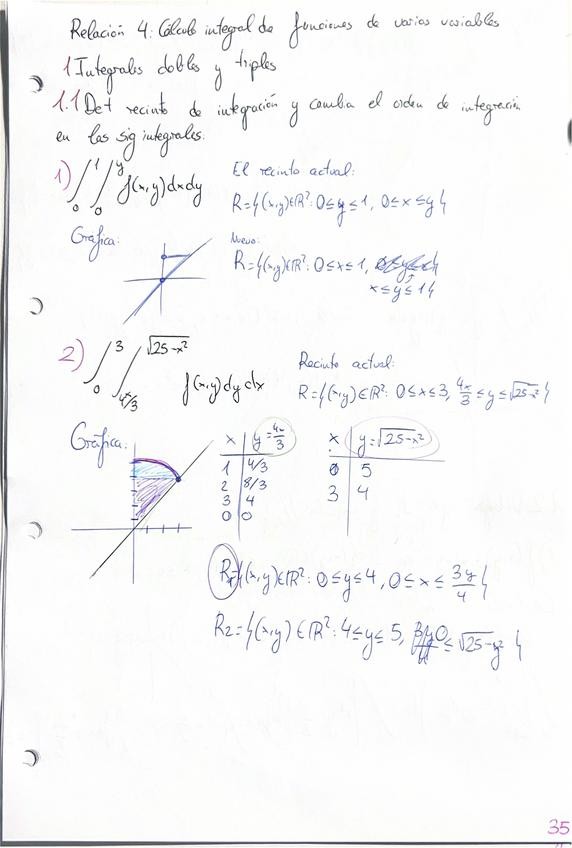 Relación 4: Cálculo integral de funciones de varias variables
1 Integrales dobles y triples
1.1 Det recinto de integración y cambia el orden de integración
en las sig integrales:
1) ∫₀¹ ∫₀ʸ f(x,y) dx dy
El recinto actual:
R={(x,y)∈ℝ²: 0≤y≤1, 0≤x≤y}
Gráfica:
Nuevo:
R={(x,y)∈ℝ²: 0≤x≤1,
x≤y≤1}
2) ∫₀³ ∫_{4x/3}^{√25-x²} f(x,y) dy dx
Recinto actual:
R={(x,y)∈ℝ²: 0≤x≤3, 4x/3≤y≤√25-x²}
Gráfica:
x | y=4x/3
1 | 4/3
2 | 8/3
3 | 4
0 | 0
x | y=√25-x²
0 | 5
3 | 4
R₁={(x,y)∈ℝ²: 0≤y≤4, 0≤x≤3y/4}
R₂={(x,y)∈ℝ²: 4≤y≤5, 0≤√25-y²}
35